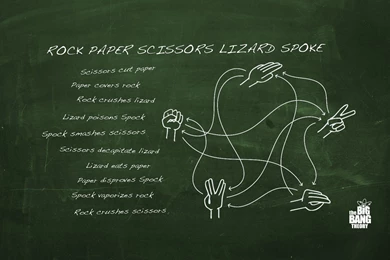 ROCK PAPER SCISSORS LIZARD SPOKE
Scissors cut paper
Paper covers rock
Rock crushes lizard
Lizard poisons Spock
Spock smashes scissors
Scissors decapitate lizard
Lizard eats paper
Paper disproves Spock
Spock vaporizes rock
Rock crushes scissors.
the BIG
BANG
THEORY